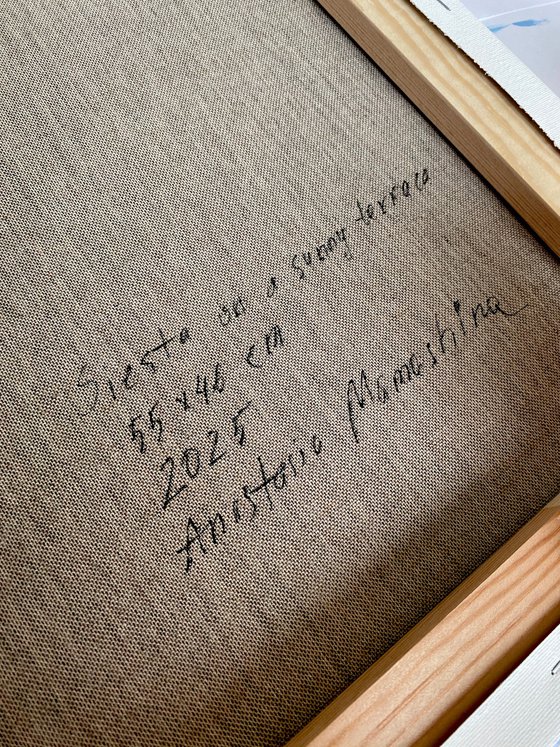 Siesta on a sunny terrace
55 x 46 cm
2025
Anastasia Mamoshina